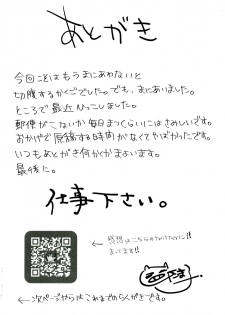 あとがき
今回ことはもうまにあわないと
切腹するかくごでした。でも、まにあいました。
ところで最近ひっこしました。
郵便がこないか毎日まつくらいにはさみしいです。
おかげで原稿する時間がなくてやばかったです。
いつもあとがき何かくかまよいます。
最後に。
仕事下さい。
感想はこちらのTwitterに!!
まってます!!
次ページからはこれまでのらくがきです。